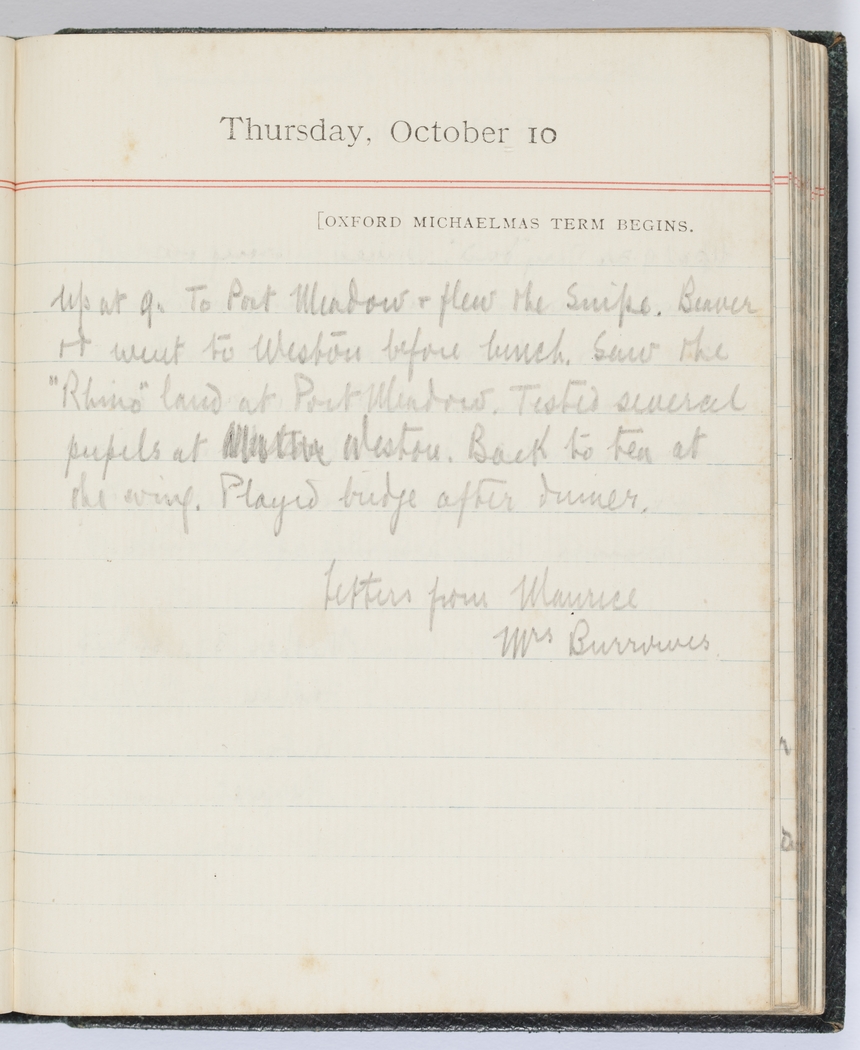 Thursday, October 10
[OXFORD MICHAELMAS TERM BEGINS.
Up at 9. To Port Meadow + flew the Snipe. Beaver
+ I went to Weston before lunch. Saw the
"Rhino" land at Port Meadow. Tested several
pupils at Weston. Back to tea at
the wing. Played bridge after dinner.
Letters from Maurice
Mrs Burrowes